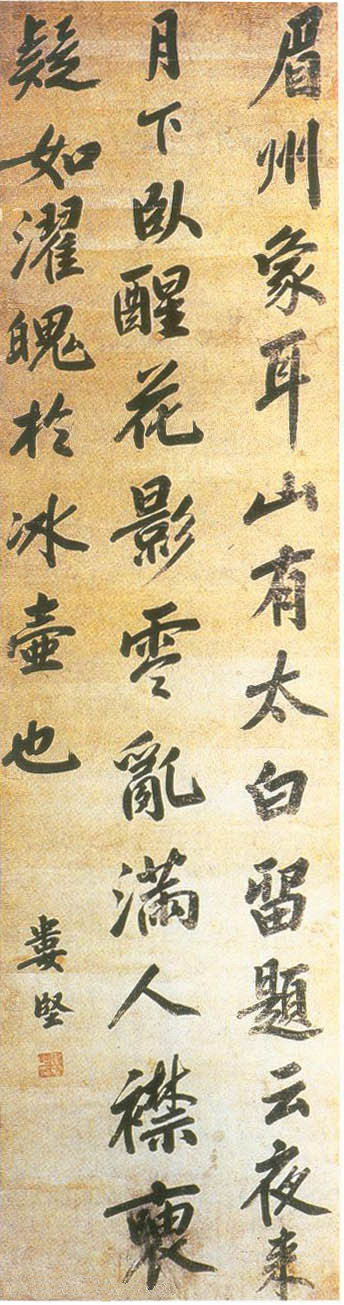 眉州象耳山有太白留題云夜来
月下臥醒花影零亂滿人襟裏
疑如濯魄於冰壺也
婁堅